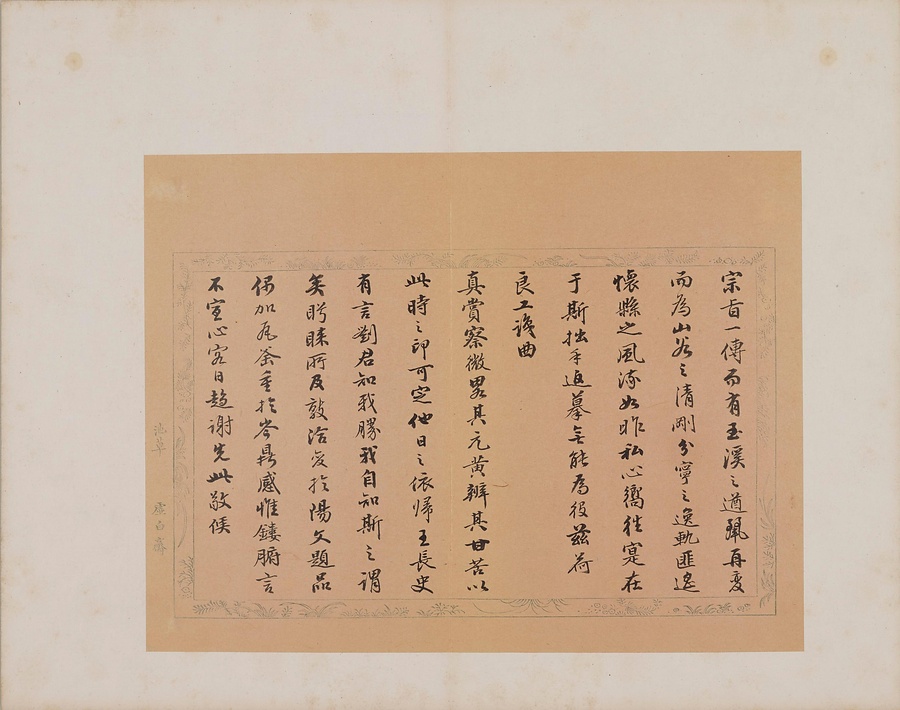 宗旨一傳而有玉溪之遒麗再變
而為山谷之清剛分寧之逸軌匪遙
懷縣之風流如昨私心嚮往寔在
于斯拙手追摹無能為役茲荷
良工識曲
真賞察微畧其元黃辨其甘苦以
此時之印可定他日之依歸王長史
有言劉君知我勝我自知斯之謂
矣眄睞所及敲洽爰於陽文題品
偶加瓦釜重於岑鼎感惟鏤腑言
不宣心容日趨謝先此敬候
池草
虛白齋